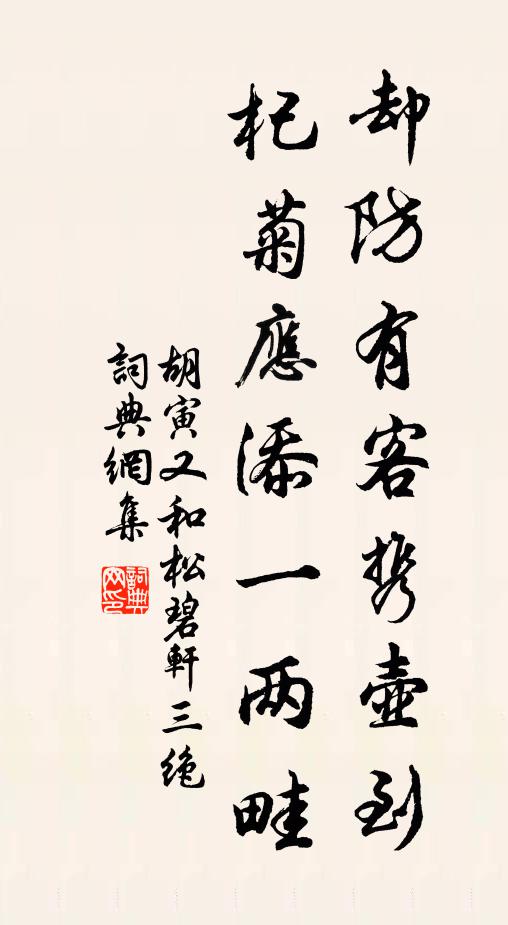 却防有客携壺到
杞菊應添一两畦
胡寅又和松碧軒三绝
詞典網集
詞典网印